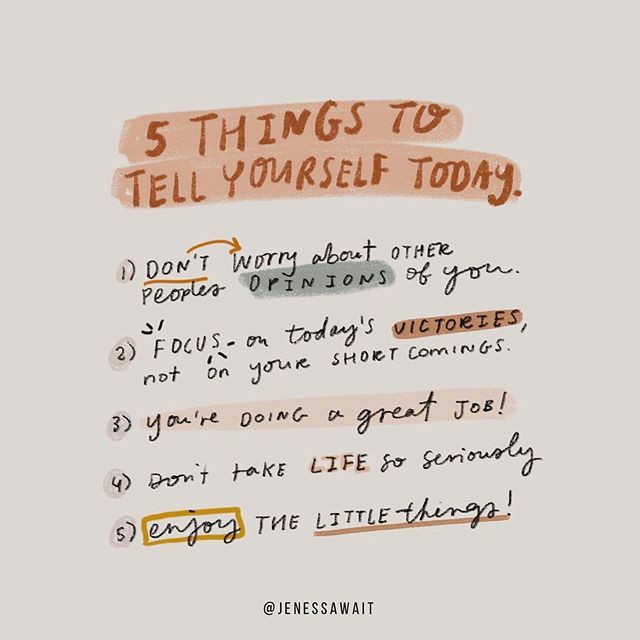 5 THINGS TO
TELL YOURSELF TODAY.
1) DON'T worry about OTHER
peoples OPINIONS of you.
2) FOCUS on today's VICTORIES,
not on your SHORTCOMINGS.
3) you're DOING a great JOB!
4) Don't take LIFE so seriously
5) enjoy THE LITTLE things!
@JENESSAWAIT